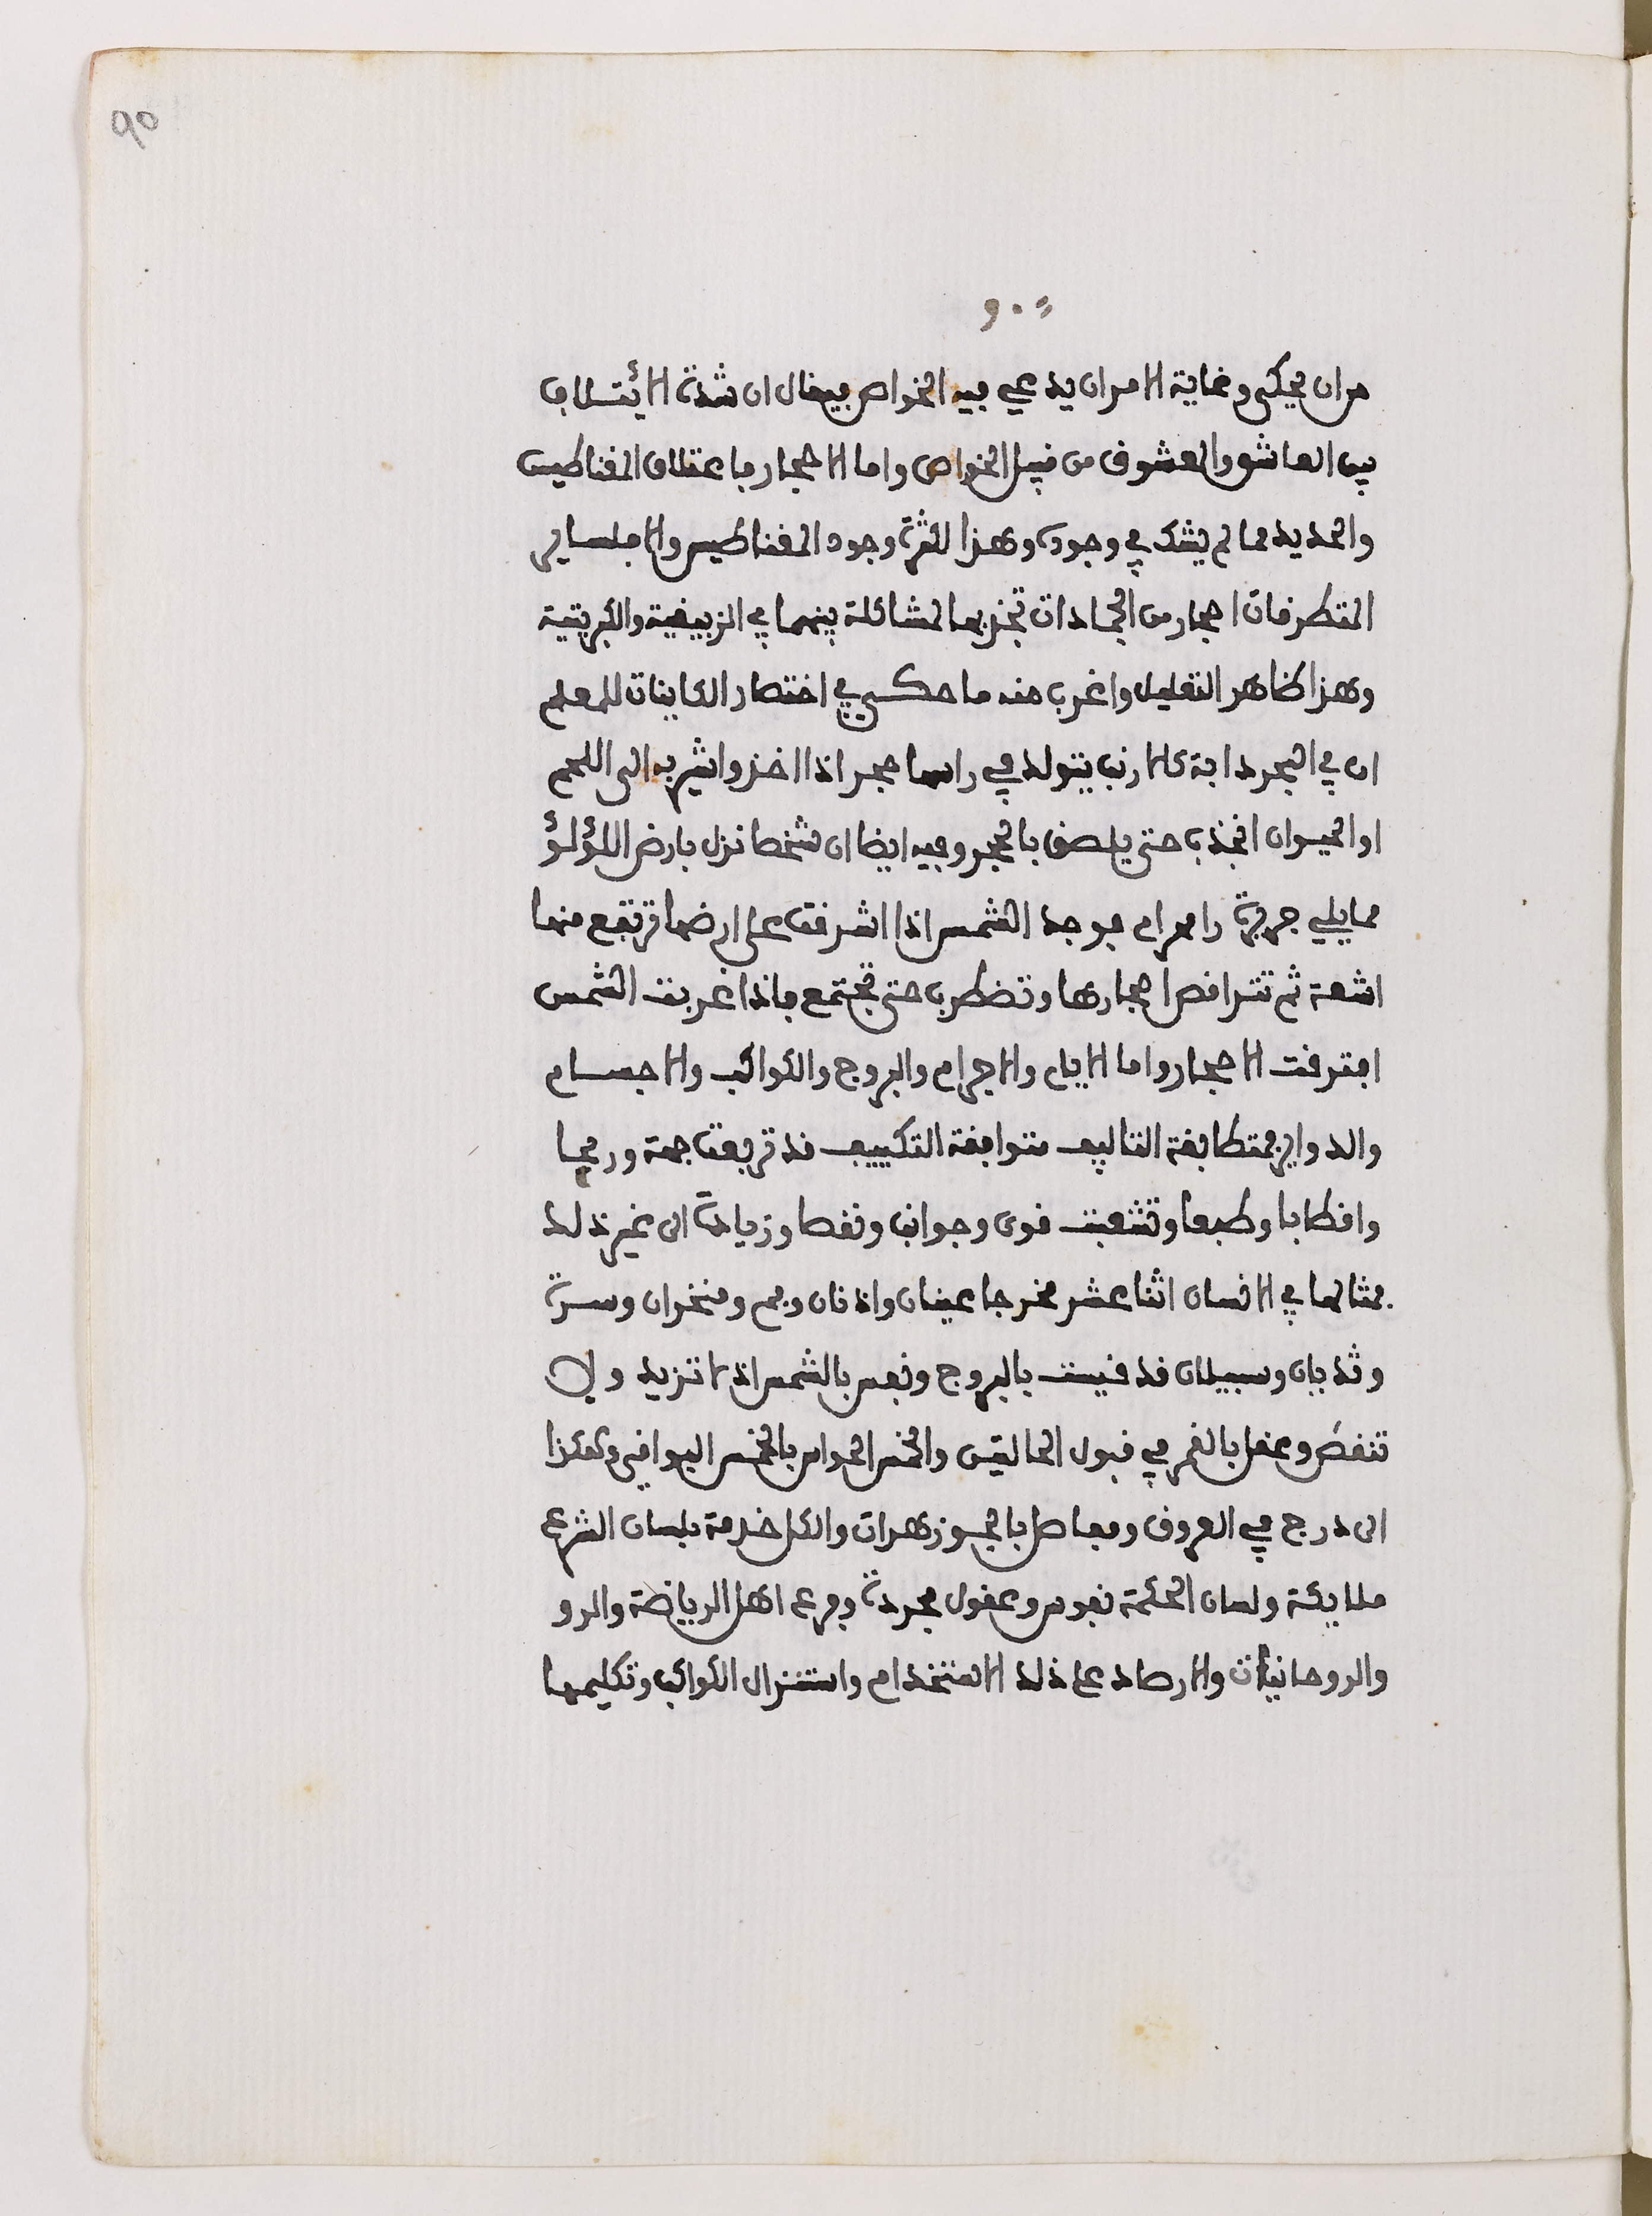 90
من ان يحكى وغاية الامر ان يدعي فيه الخواص فيقال ان شدة الائتلاف
بين العاشق والمعشوق من قبيل الخواص واما الاحجار فاعتلاق المغناطيس
والحديد مما لم يشك في وجوده وهذا لكثرة وجود المغناطيس والا فلسائر
المتطرقات احجار من الجمادات تجذبها لمشاكلة بينهما في الزيبقية والكبريتية
وهذا ظاهر التعليل واغرب منه ما حكى في اختصار الكاينات للمعلم
ان في البحر دابة كالارنب يتولد في راسها حجر اذا اخذ واشير به الى اللحم
او الحيوان انجذب حتى يلصق بالحجر وفيه ايضا ان شخصا نزل بارض اللؤلؤ
مما يلي جزيرة رامرام فوجد الشمس اذا اشرقت على ارضها ترتفع منها
اشعة ثم تتراقص احجارها وتضطرب حتى تجتمع فاذا غربت الشمس
افترقت الاحجار واما الايام والاجرام والبروج والكواكب والاجسام
والدواير فمتطابقة التاليف متوافقة التكييف قد تربعت جهة وريحا
واقطابا وطبعا وتشعبت قوى وجوانب ونقصا وزيادة الى غير ذلك
فمثالها في الانسان اثنا عشر مخرجا عينان واذنان وفم ومنخران وسرة
وثديان وسبيلان قد قيست بالبروج ونفس بالشمس اذ لا تزيد ولا
تنقص وعقل بالقمر في قبول الحالتين والخمس الحواس بالخمس البواقي وهكذا
الى درج في العروق ومفاصل بالجوزهرات والكل خدمة بلسان الشرع
ملايكة ولسان الحكمة نفوس وعقول مجردة وفرع اهل الرياضة والرو
والروحانيات والارصاد على ذلك الاستخدام واستنزال الكواكب وتكليمها